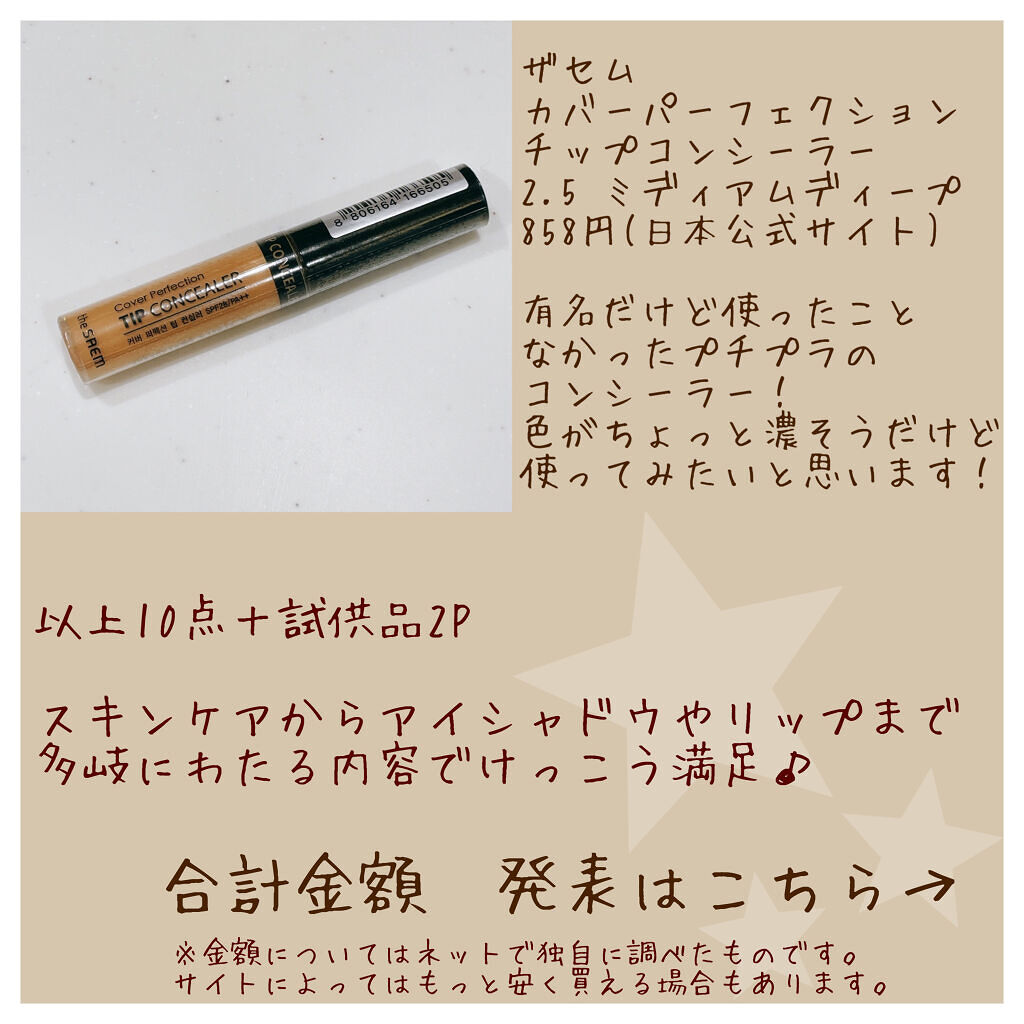 ザセム
カバーパーフェクション
チップコンシーラー
2.5 ミディアムディープ
858円(日本公式サイト)
有名だけど使ったこと
なかったプチプラの
コンシーラー!
色がちょっと濃そうだけど
使ってみたいと思います!
8 806164 166505
TIP CONCEALER
Cover Perfection
TIP CONCEALER
커버 퍼펙션 팁 컨실러 SPF28/PA++
the SAEM
以上10点+試供品2P
スキンケアからアイシャドウやリップまで
多岐にわたる内容でけっこう満足♪
合計金額 発表はこちら→
※金額についてはネットで独自に調べたものです。
サイトによってはもっと安く買える場合もあります。